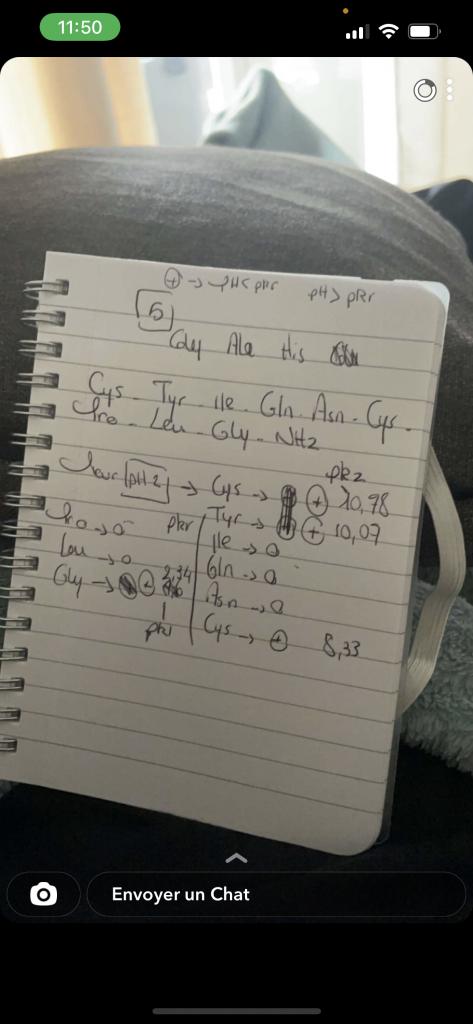 11:50
⊕ → pH < pKr pH > pKr
5
Gly Ala His
Cys - Tyr - Ile - Gln - Asn - Cys -
Pro - Leu - Gly - NH2
Pour pH 2 → Cys → ⊕ 10,78
pk2
Pro → 0 pkr Tyr → ⊕ 10,07
Leu → 0 Ile → 0
Gly → ⊕ 2,34 Gln → 0
Asn → 0
pk1 Cys → ⊕ 8,33
Envoyer un Chat